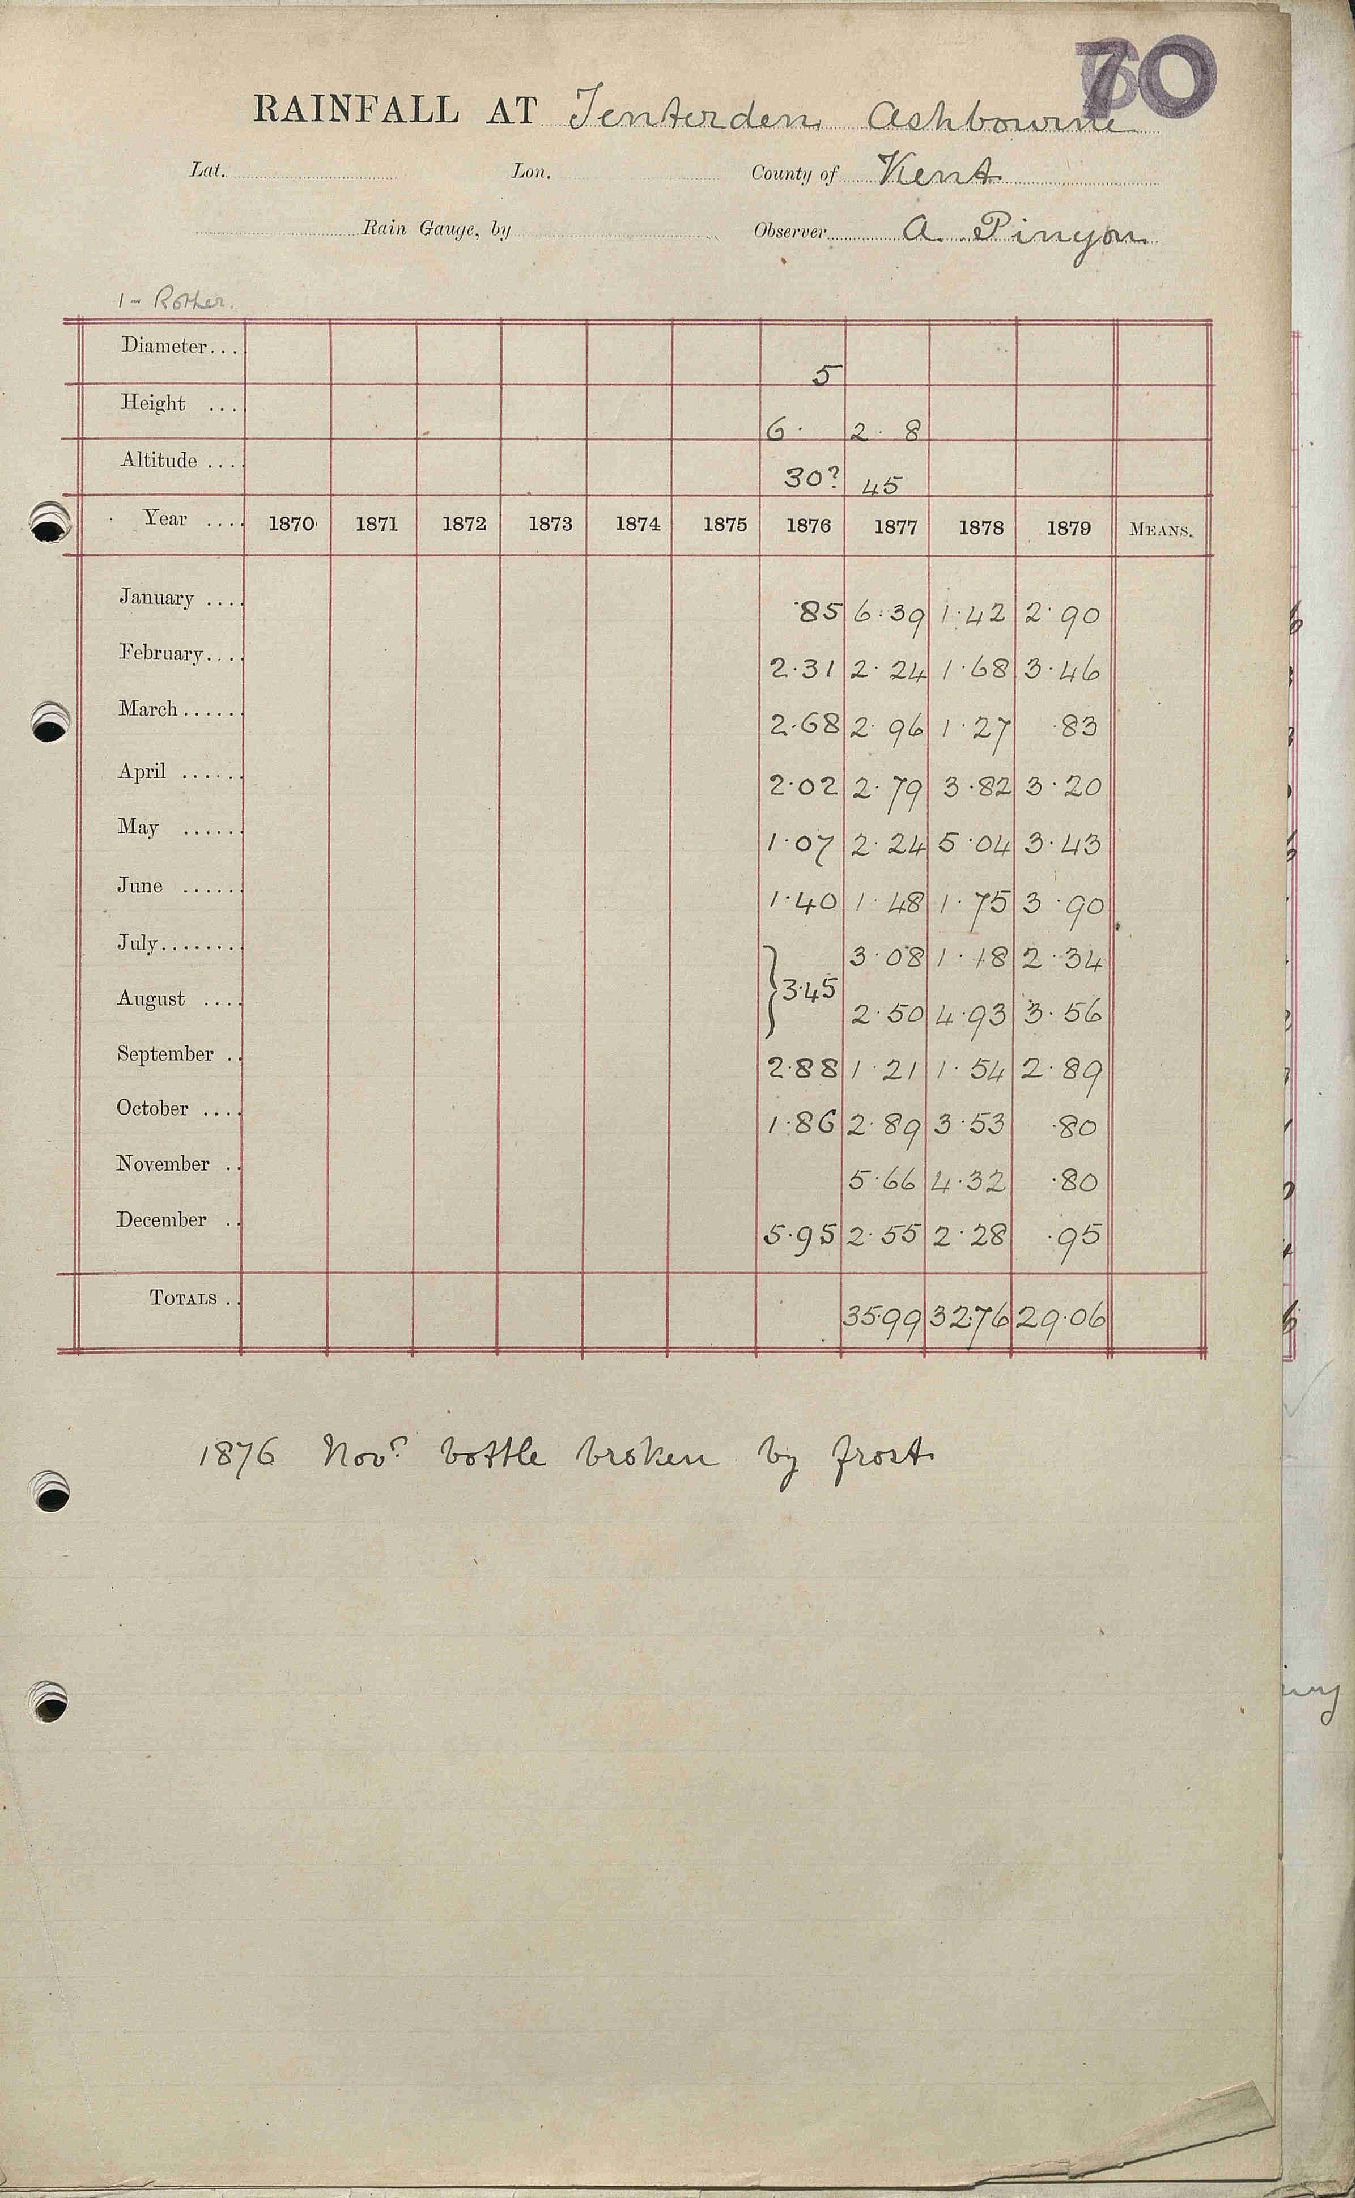 70
RAINFALL AT Tenterden Ashbourne
Lat. Lon. County of Kent
Rain Gauge, by Observer A. Pinyon
1- Rother.
Diameter... 5
Height ... 6. 2. 8
Altitude .... 30? 45
Year .... 1870 1871 1872 1873 1874 1875 1876 1877 1878 1879 MEANS.
January .... ·85 6·39 1·42 2·90
February.... 2·31 2·24 1·68 3·46
March...... 2·68 2·96 1·27 ·83
April ...... 2·02 2·79 3·82 3·20
May ...... 1·07 2·24 5·04 3·43
June ...... 1·40 1·48 1·75 3·90
July........ 3·08 1·18 2·34
} 3·45
August .... 2·50 4·93 3·56
September .. 2·88 1·21 1·54 2·89
October .... 1·86 2·89 3·53 ·80
November .. 5·66 4·32 ·80
December .. 5·95 2·55 2·28 ·95
TOTALS .. 35·99 32·76 29·06
1876 Nov? bottle broken by frost.